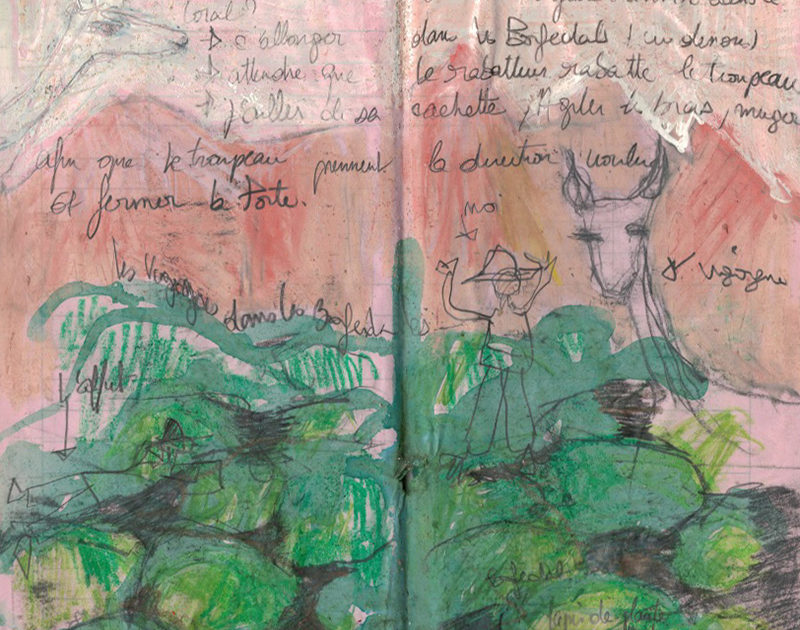 (oral)
→ s'allonger dans les Bofedals ! (en dessous)
→ attendre que le rabatteur rabatte le troupeau
→ jaillir de sa cachette, Agiter les bras,
afin que le troupeau prennent la direction voulue
Et fermer la Porte.
moi
vigogne
les vigognes dans les Bofedals
l'affut
Bofedal
tapis de plante